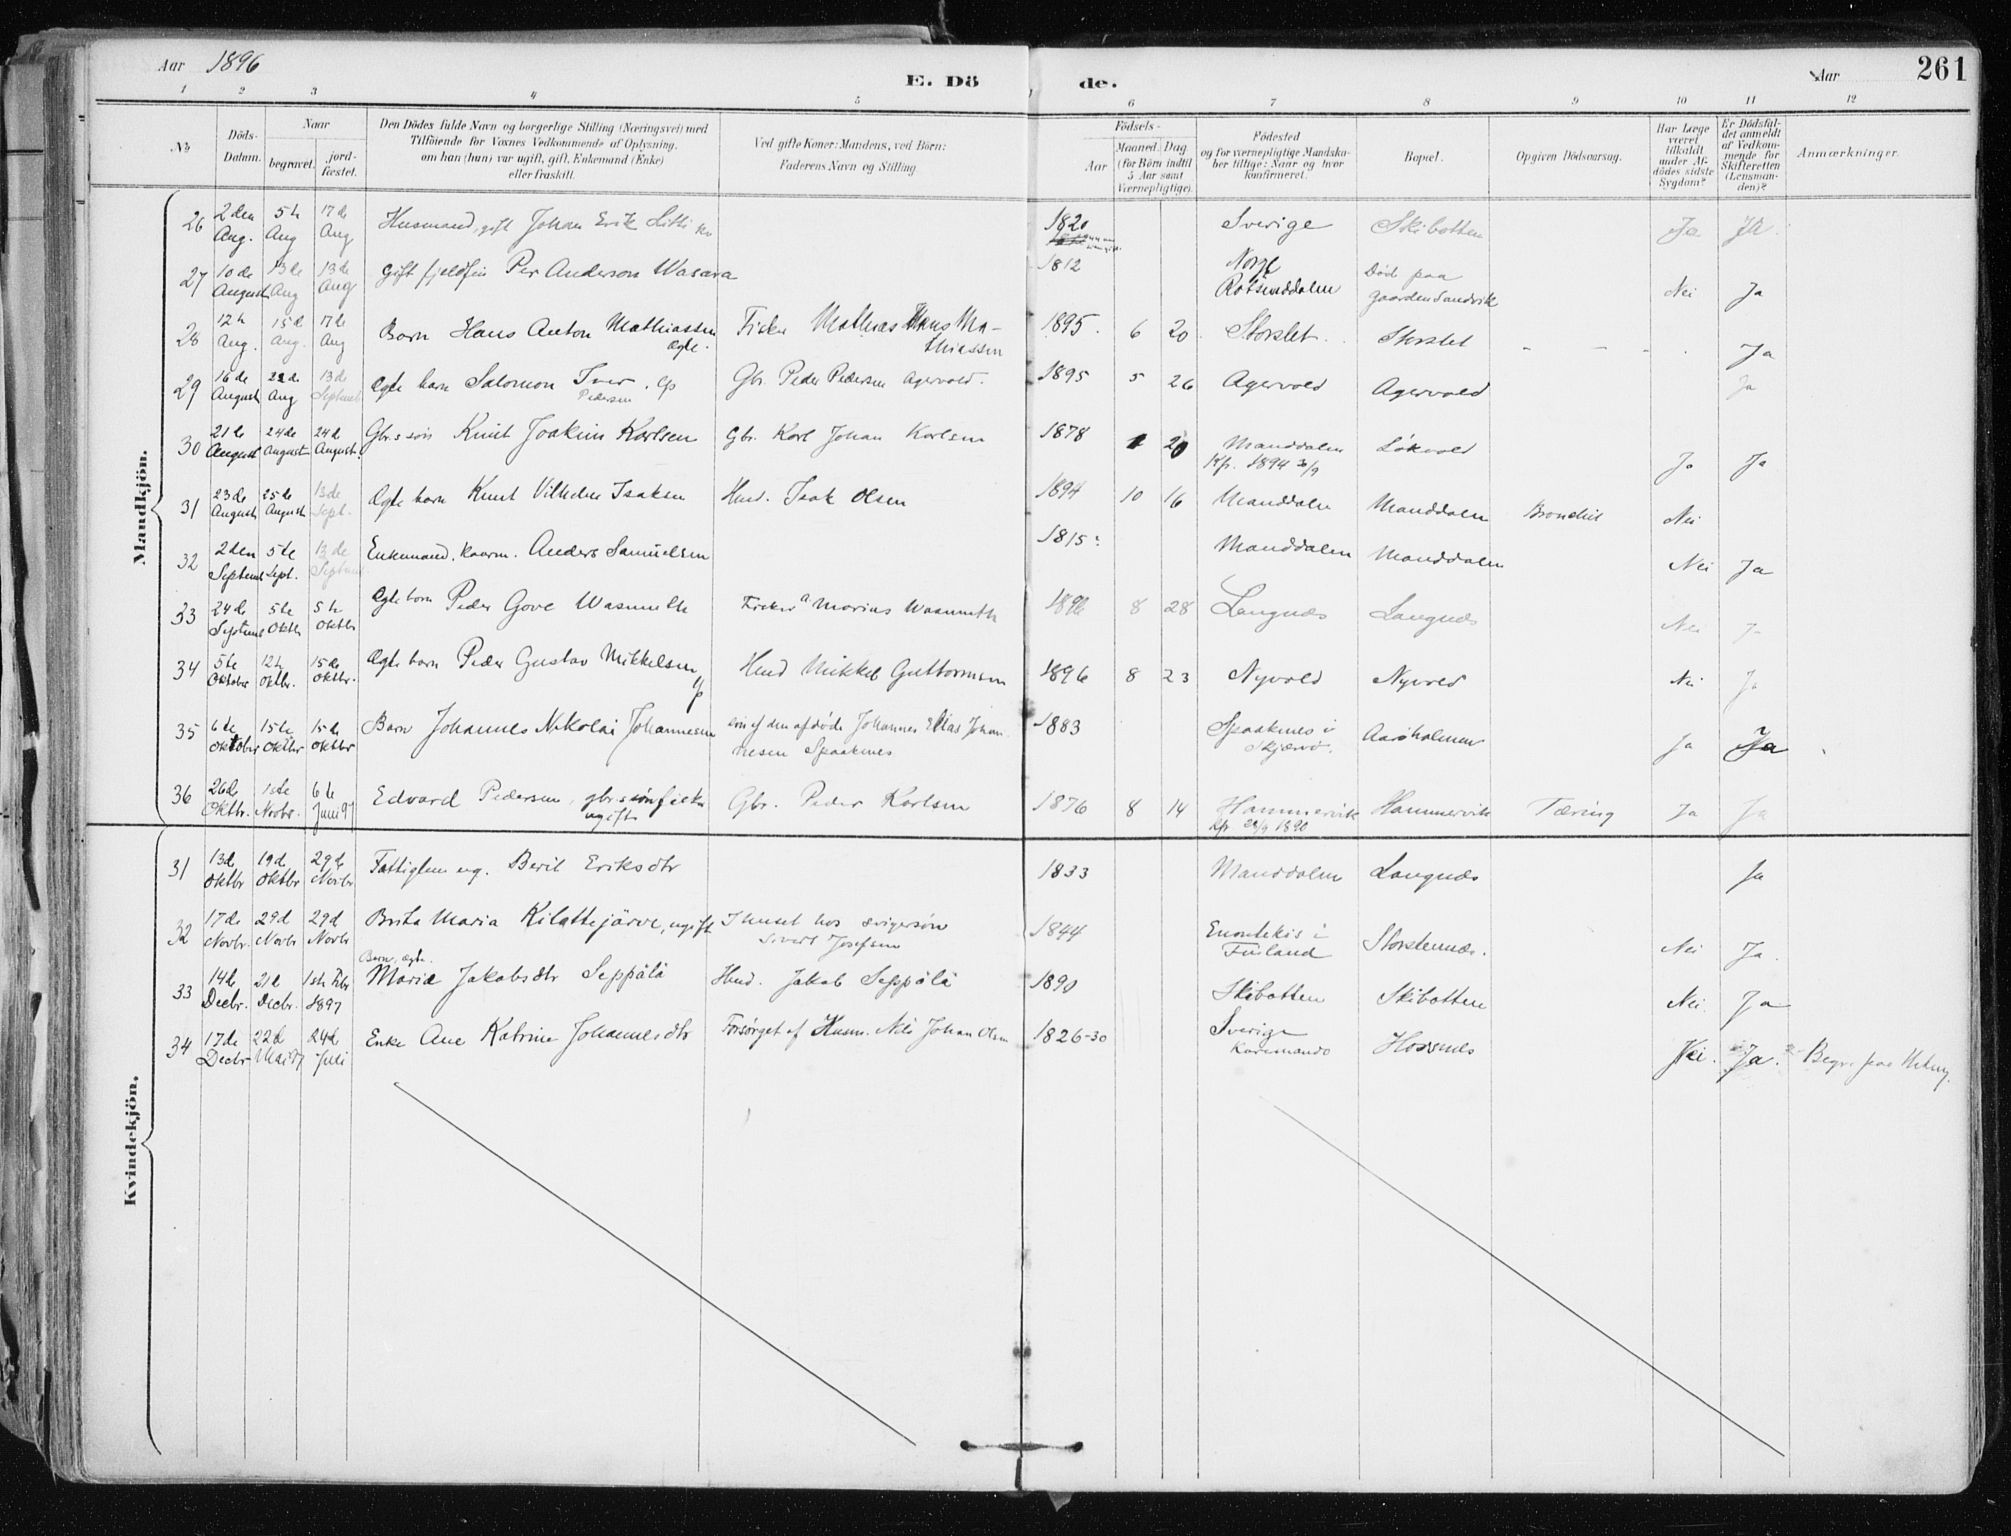 Aar 1896 E. Dö de. Aar 261
1 2 3 4 5 6 7 8 9 10 11 12
No Döds-Datum. Naar begravet. jord-fæstet. Den Dödes fulde Navn og borgerlige Stilling (Næringsvei) med Tilföiende for Voxnes Vedkommende af Oplysning, om han (hun) var ugift, gift, Enkemand (Enke) eller fraskilt. Ved gifte Koner: Mandens, ved Börn: Faderens Navn og Stilling Födsels- Aar Maaned. Dag (for Börn indtil 5 Aar samt Værnepligtige). Födested og for værnepligtige Mandskaber tillige: Naar og hvor konfirmeret. Bopæl. Opgiven Dödsaarsag. Har Læge været tilkaldt under Afdödes sidste Sygdom? Er Dödsfaldet anmeldt af Vedkommende for Skifteretten (Lensmanden)? Anmærkninger.
Mandkjön.
26 2den Aug. 5te Aug 17de Aug Husmand, gift Johan Erik 1820 Sverige Skibotten Ja Ja
27 10de August 13de Aug 13de Aug gift fjeldfin Per Anderson Wasara 1812 Norge Rotsunddalen Død paa gaarden Sandvik Nei Ja
28 12te Aug. 15de Aug. 17de Aug Barn Hans Anton Mathiassen ægte. Fisker Mathias Hans Mathiassen 1895. 6 20 Storslet Storslet - - - Ja
29 16de August 22de Aug 13de Septemb Ægte barn Salomon Iver Pedersen Gbr. Peder Pedersen Agervold. 1895 5 26 Agervold Agervold Ja
30 21de August 24de August 24de August. Gbr.s søn Knut Joakim Karlsen Gbr. Karl Johan Karlsen 1878 1 20 Manddalen Kfr. 1894 30/9 Løkvold Ja Ja
31 23de August 25de August 13de Sept. Ægte barn Knut Vilhelm Isaksen Husd. Isak Olsen 1894 10 16 Manddalen Manddalen Bronchit Nei
32 2den Septemb 5te Sept. 13de Septemb Enkemand, Anders Samuelsen 1815? Manddalen Manddalen Nei Ja
33 24de Septemb 5te Oktbr 5te Oktbr Ægte barn Peder Gove Wasmuth Fisker Marius Wasmuth 1896 8 28 Langnæs Langnæs Nei J-
34 5te Oktober 12te Oktbr. 15de Oktbr. Ægte barn Peder Gustav Mikkelsen Husd Mikkel Guttormsen 1896 8 23 Nyvold Nyvold Nei Ja
35 6te Oktober 15te Oktbr 15de Oktbr Barn Johannes Nikolai Johannesen søn af den afdøde Johannes Elias Johannesen Spaaknes 1883 Spaaknes i Skjærvø. Aarøholmen Ja Ja
36 26de Oktbr. 1ste Novbr. 6te Juni 97 Edvard Pedersen, gbr.s søn fisker ugift Gbr. Peder Karlsen 1876 8 14 Hammervik Kfr. 28/9 1890 Hammervik Tæring Ja Ja
Kvindekjön.
31 13de Oktbr 19de Oktbr 29de Novbr Fattiglem ug. Berit Eriksdtr 1833 Manddalen Langnæs Ja
32 17de Novbr. 29d Novbr 29d Novbr Brita Maria Kilattejärve, ugift I huset hos svigersøn Sivert Josefsen 1844 Enontekis i Finland Storstennæs. Nei Ja.
33 14de Decbr. 21de Decbr. 1ste Febr 1897 Barn, ægte. Maria Jakobsdtr Seppälä Husd. Jakob Seppälä 1890 Skibotten Skibotten Nei Ja
34 17de Decbr 22d Mai 97 24de Juli Enke Ane Katrine Johannesdtr Forsørget af Husm. Nils Johan Olsen 1826-30 Sverige Karesuando Horsnes Nei. Ja. Begr. paa